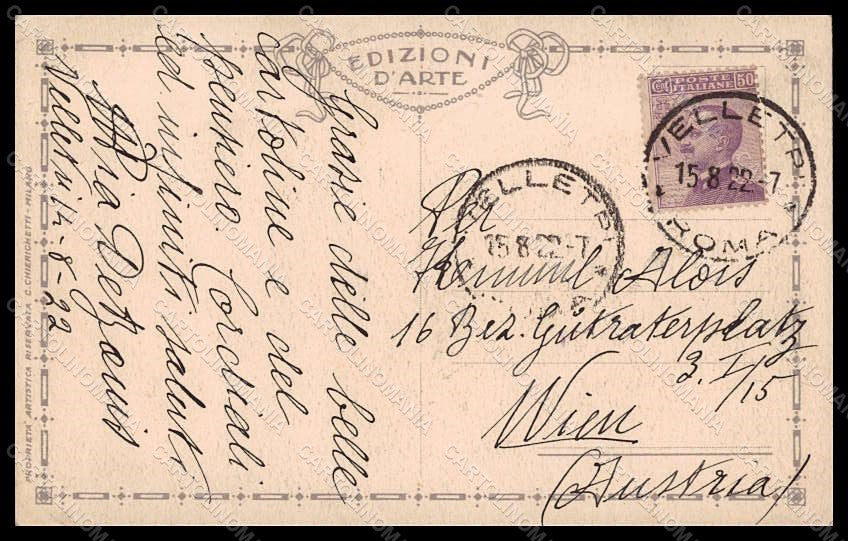 EDIZIONI
D'ARTE
Grazie delle belle
cartoline e del
pensiero. Cordiali
ed infiniti saluti
Velletri 14-8-22
PROPRIETÀ ARTISTICA RISERVATA C. CHIERICHETTI - MILANO
Cent POSTE 50
ITALIANE
VELLETRI
15.8.22-7
ROMA
VELLETRI
15.8.22-7
Alois
16 Bez. Gutraterplatz
3. I/15
Wien
(Austria)
CARTOLINOMANIA